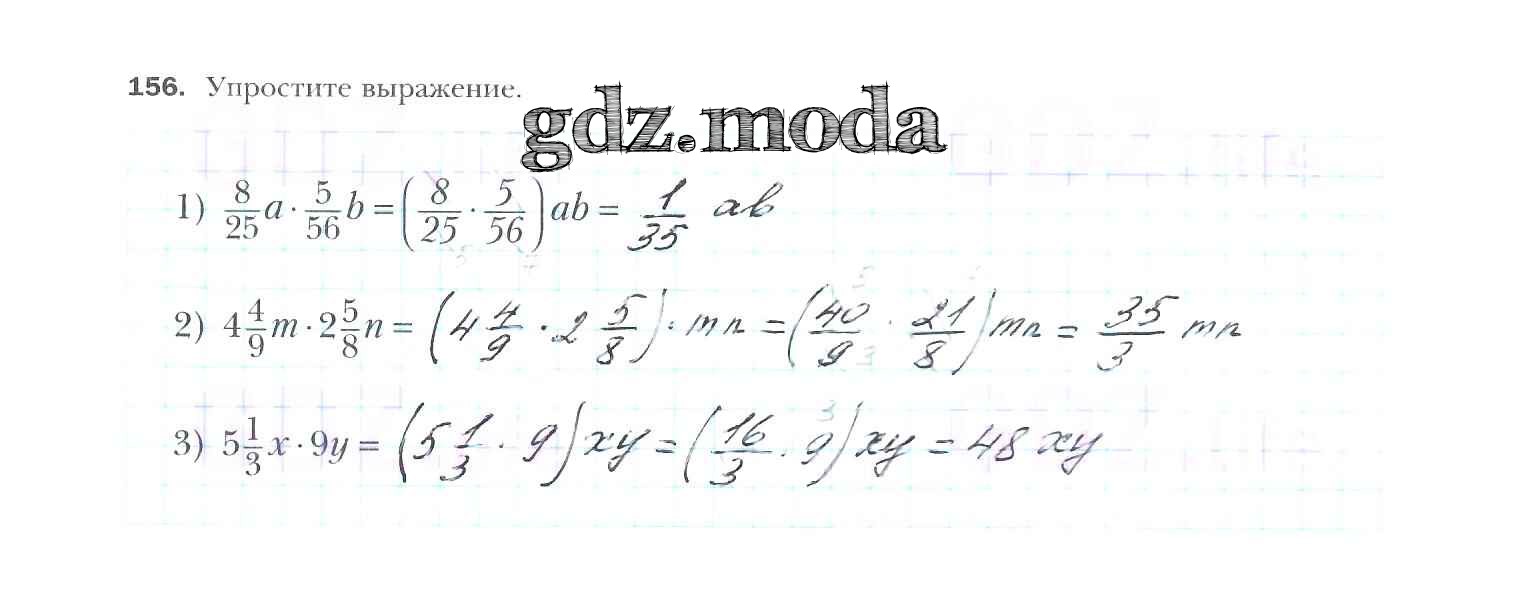 156. Упростите выражение.
gdz.moda
1) 8/25 a · 5/56 b = (8/25 · 5/56) ab = 1/35 ab
2) 4 4/9 m · 2 5/8 n = (4 4/9 · 2 5/8) · mn = (40/9 · 21/8) mn = 35/3 mn
3) 5 1/3 x · 9y = (5 1/3 · 9) xy = (16/3 · 9) xy = 48 xy